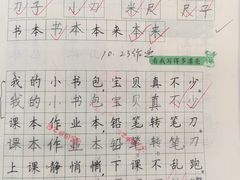 刀子 小刀 米尺 尺子
书本 书本 本来 本来
10.23作业
看我写得多漂亮
我的小书包,宝贝真不少。
我的小书包,宝贝真不少。
课本作业本,铅笔转笔刀。
课本作业本,铅笔转笔刀。
上课静悄悄,下课不乱跑。